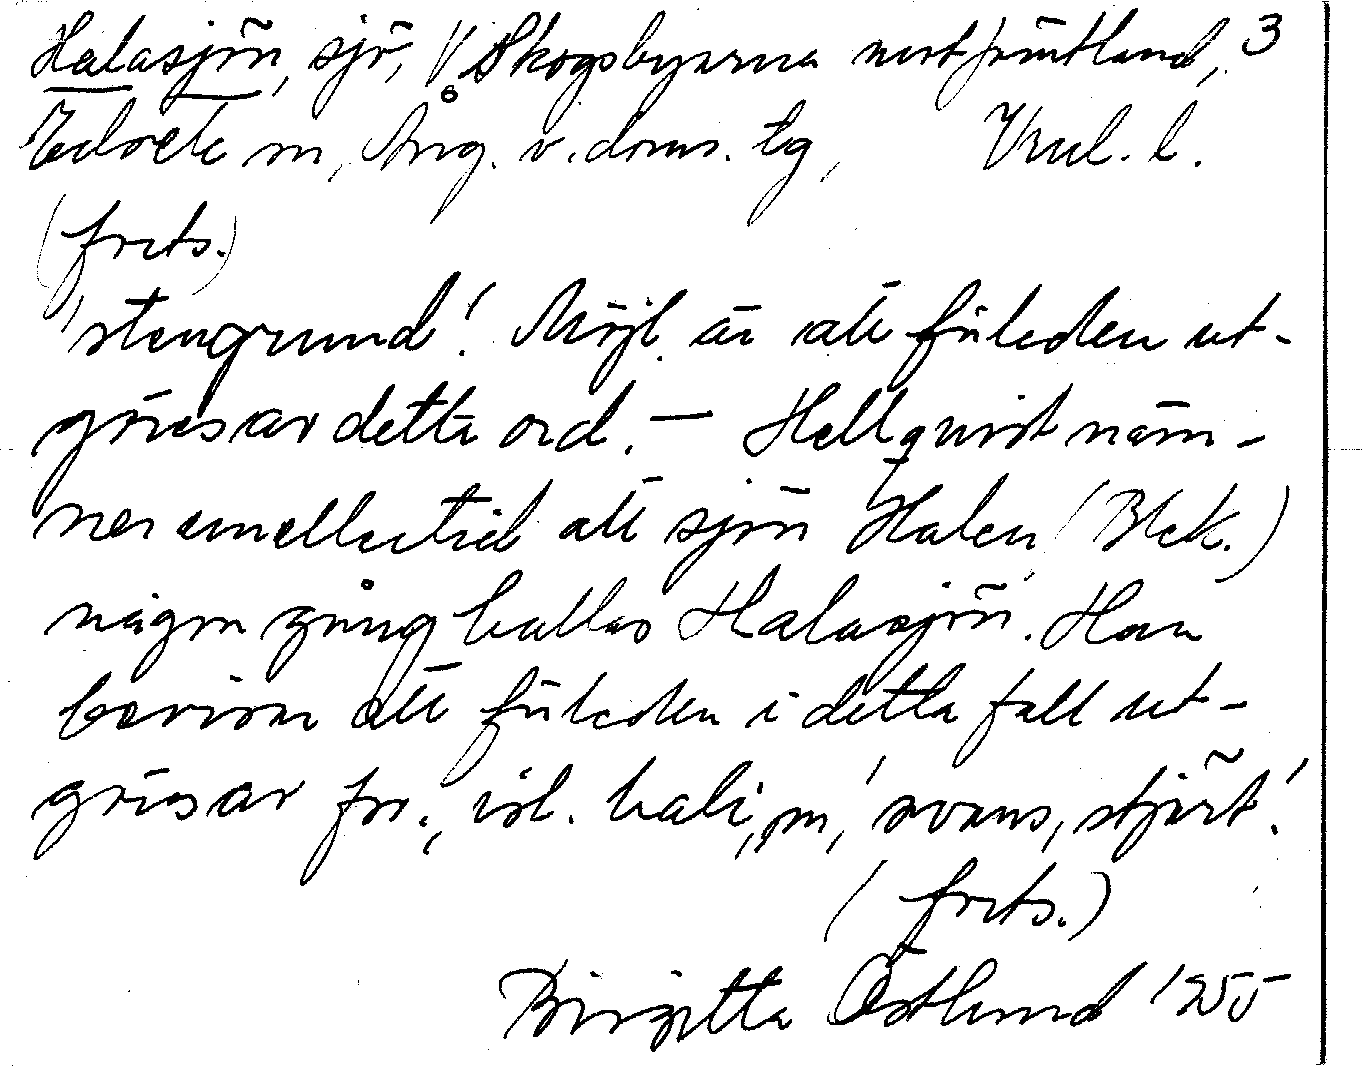 Halasjön, sjö, V Skogsbyarna mot Jämtland, 3
Edsele sn, Ång. v. doms. tg, Vnl. l.
(forts.)
'stengrund'. Möjl. är att förleden ut-
göres av detta ord. — Hellquist näm-
ner emellertid att sjön Halen (Blek.)
någon gång kallas Halasjön. Han
bevisar att förleden i detta fall ut-
göres av fsv., isl. hali, m, 'svans, stjärt'.
(forts.)
Birgitta Östlund 1955